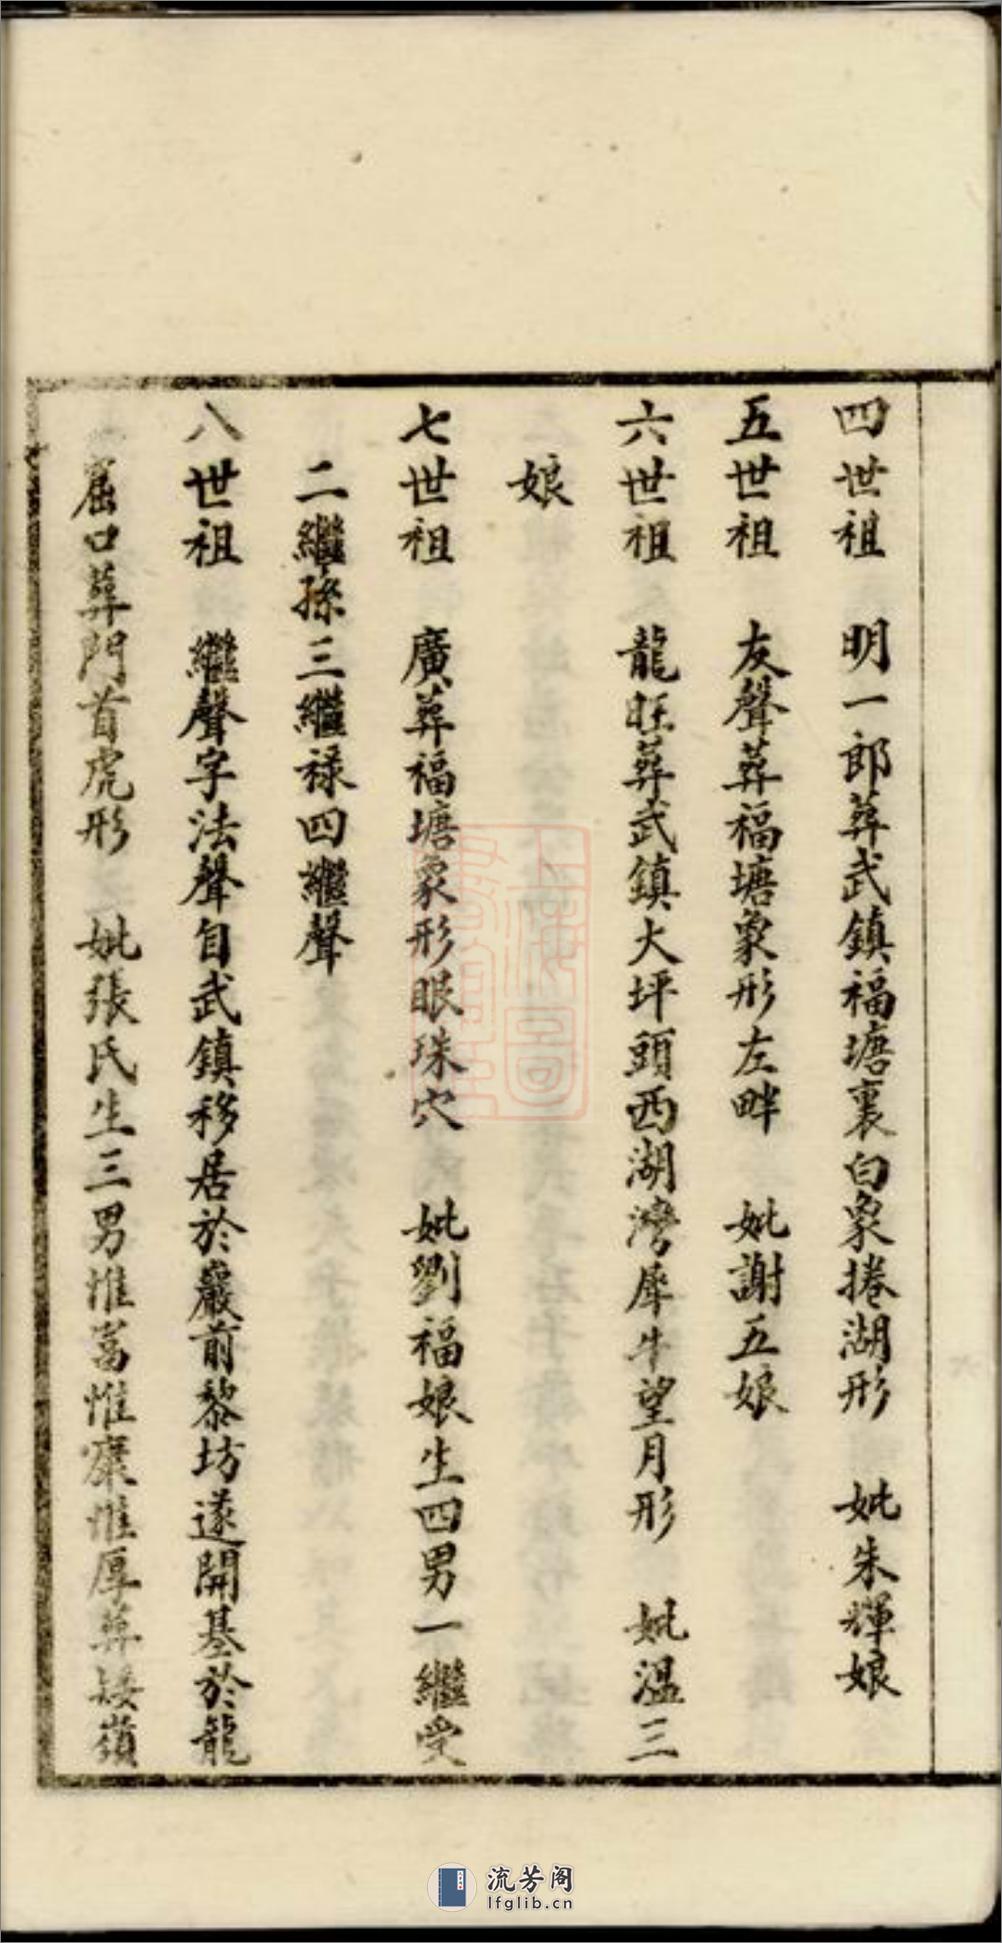 四世祖　明一郎葬武鎮福塘裏白象捲湖形　妣朱輝娘
五世祖　友聲葬福塘象形左畔　妣謝五娘
六世祖　龍旺葬武鎮大坪頭西湖灣犀牛望月形　妣溫三
娘
七世祖　廣葬福塘象形眼珠穴　妣劉福娘生四男一繼受
二繼孫三繼祿四繼聲
八世祖　繼聲字法聲自武鎮移居於巖前黎坊遂開基於龍
窟口葬門首虎形　妣張氏生三男惟富惟康惟厚葬矮嶺
上海圖書館藏
流芳阁
lfglib.cn